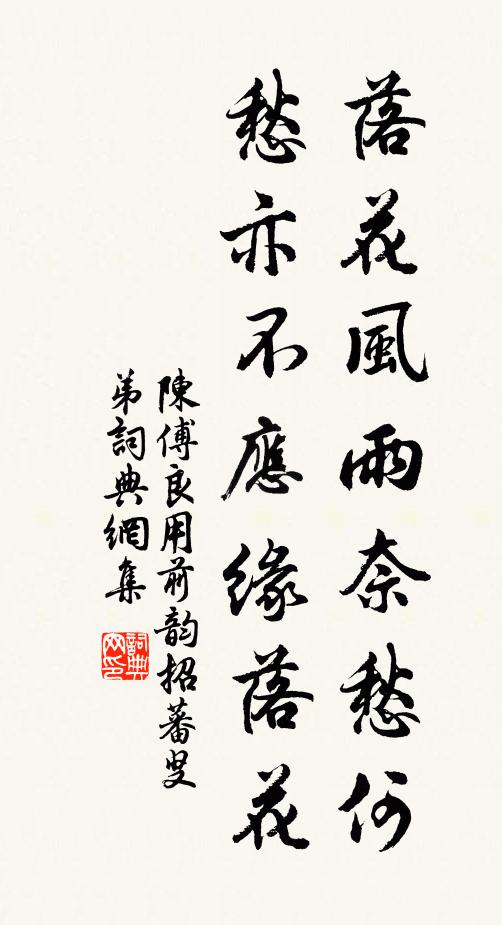 落花風雨奈愁何
愁亦不應緣落花
陳傅良用前韵招蕃叟
弟詞典網集
詞典网印